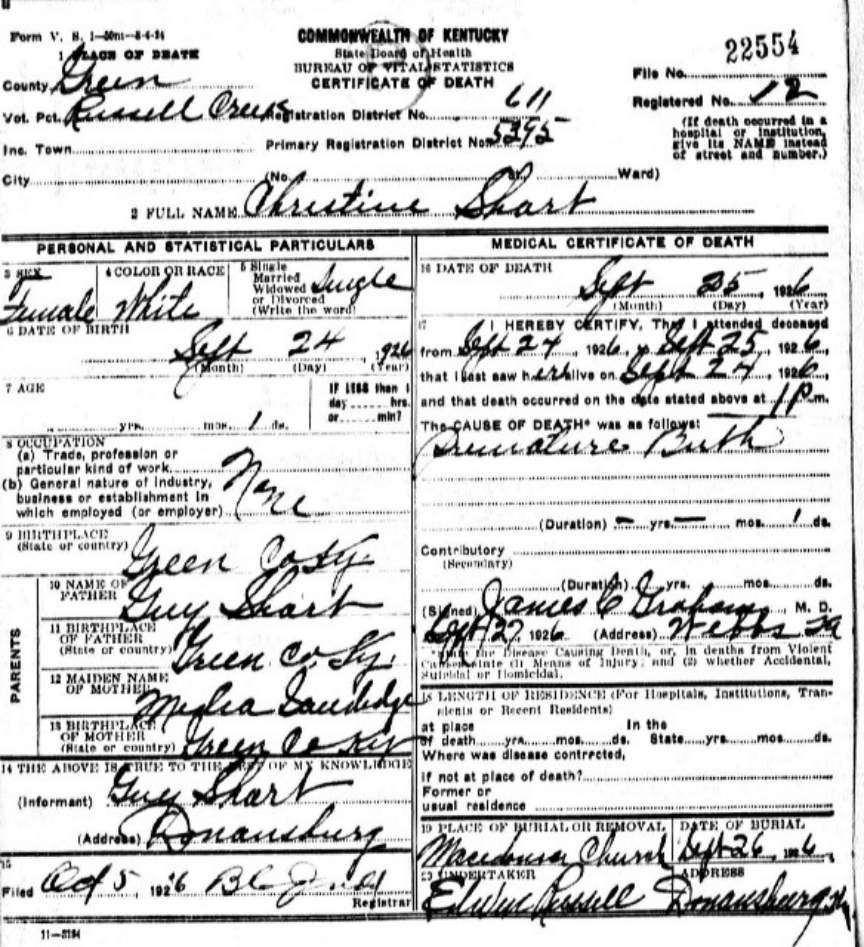 Form V. S. 1-50m-8-4-24
COMMONWEALTH OF KENTUCKY
State Board of Health
BUREAU OF VITAL STATISTICS
CERTIFICATE OF DEATH
22554
File No.
Registered No. 12
(If death occurred in a
hospital or institution,
give its NAME instead
of street and number.)
1 PLACE OF DEATH
County Green
Vot. Pct. Russell Creek Registration District No. 611
Inc. Town Primary Registration District No. 5395
City (No. St. Ward)
2 FULL NAME Christine Short
PERSONAL AND STATISTICAL PARTICULARS
3 SEX
Female
4 COLOR OR RACE
White
5 Single
Married
Widowed
or Divorced
(Write the word)
Single
6 DATE OF BIRTH
Sept 24 1926
(Month) (Day) (Year)
7 AGE
yrs. mos. 1 ds.
If LESS than 1
day hrs.
or min?
8 OCCUPATION
(a) Trade, profession or
particular kind of work
(b) General nature of industry,
business or establishment in
which employed (or employer)
None
9 BIRTHPLACE
(State or country) Green Co Ky.
PARENTS
10 NAME OF
FATHER Guy Short
11 BIRTHPLACE
OF FATHER
(State or country) Green Co Ky.
12 MAIDEN NAME
OF MOTHER
13 BIRTHPLACE
OF MOTHER
(State or country) Green Co Ky
14 THE ABOVE IS TRUE TO THE BEST OF MY KNOWLEDGE
(Informant) Guy Short
(Address) Donansburg
15
Filed Oct 5 1926
Registrar
11-3184
MEDICAL CERTIFICATE OF DEATH
16 DATE OF DEATH
Sept 25, 1926
(Month) (Day) (Year)
17 I HEREBY CERTIFY, That I attended deceased
from Sept 24, 1926, to Sept 25, 1926
that I last saw her alive on Sept 24, 1926,
and that death occurred on the date stated above at 1 P.m.
The CAUSE OF DEATH* was as follows:
Premature Birth
(Duration) - yrs. - mos. 1 ds.
Contributory
(Secondary)
(Duration) yrs. mos. ds.
(Signed) James C Graham, M. D.
Sept 27, 1926 (Address)
*State the Disease Causing Death, or, in deaths from Violent
Causes state (1) Means of Injury; and (2) whether Accidental,
Suicidal or Homicidal.
18 LENGTH OF RESIDENCE (For Hospitals, Institutions, Tran-
sients or Recent Residents)
at place In the
of death yrs. mos. ds. State yrs. mos. ds.
Where was disease contracted,
If not at place of death?
Former or
usual residence
19 PLACE OF BURIAL OR REMOVAL
Macedonia Church
DATE OF BURIAL
Sept 26, 1926
20 UNDERTAKER
Russell
ADDRESS
Donansburg Ky